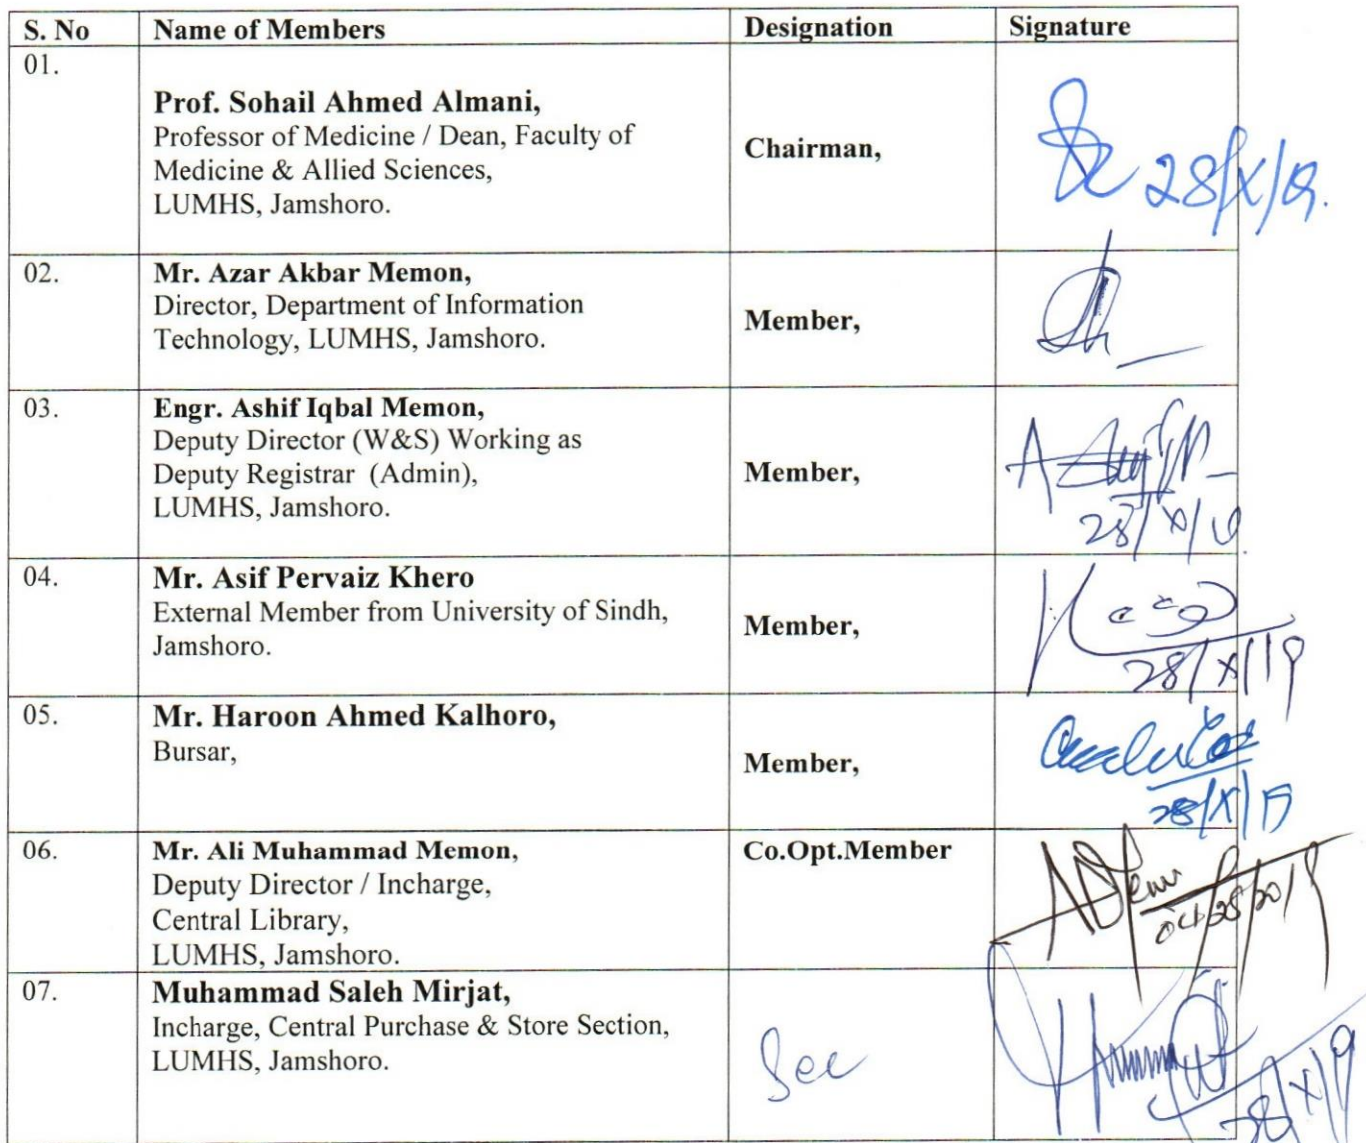 S. No Name of Members Designation Signature
01.
Prof. Sohail Ahmed Almani,
Professor of Medicine / Dean, Faculty of
Medicine & Allied Sciences,
LUMHS, Jamshoro.
Chairman,
28/X/19.
02.
Mr. Azar Akbar Memon,
Director, Department of Information
Technology, LUMHS, Jamshoro.
Member,
03.
Engr. Ashif Iqbal Memon,
Deputy Director (W&S) Working as
Deputy Registrar (Admin),
LUMHS, Jamshoro.
Member,
28/X/19
04.
Mr. Asif Pervaiz Khero
External Member from University of Sindh,
Jamshoro.
Member,
28/X/19
05.
Mr. Haroon Ahmed Kalhoro,
Bursar,
Member,
28/X/19
06.
Mr. Ali Muhammad Memon,
Deputy Director / Incharge,
Central Library,
LUMHS, Jamshoro.
Co.Opt.Member
Oct/28/2019
07.
Muhammad Saleh Mirjat,
Incharge, Central Purchase & Store Section,
LUMHS, Jamshoro.
Sec
28/X/19